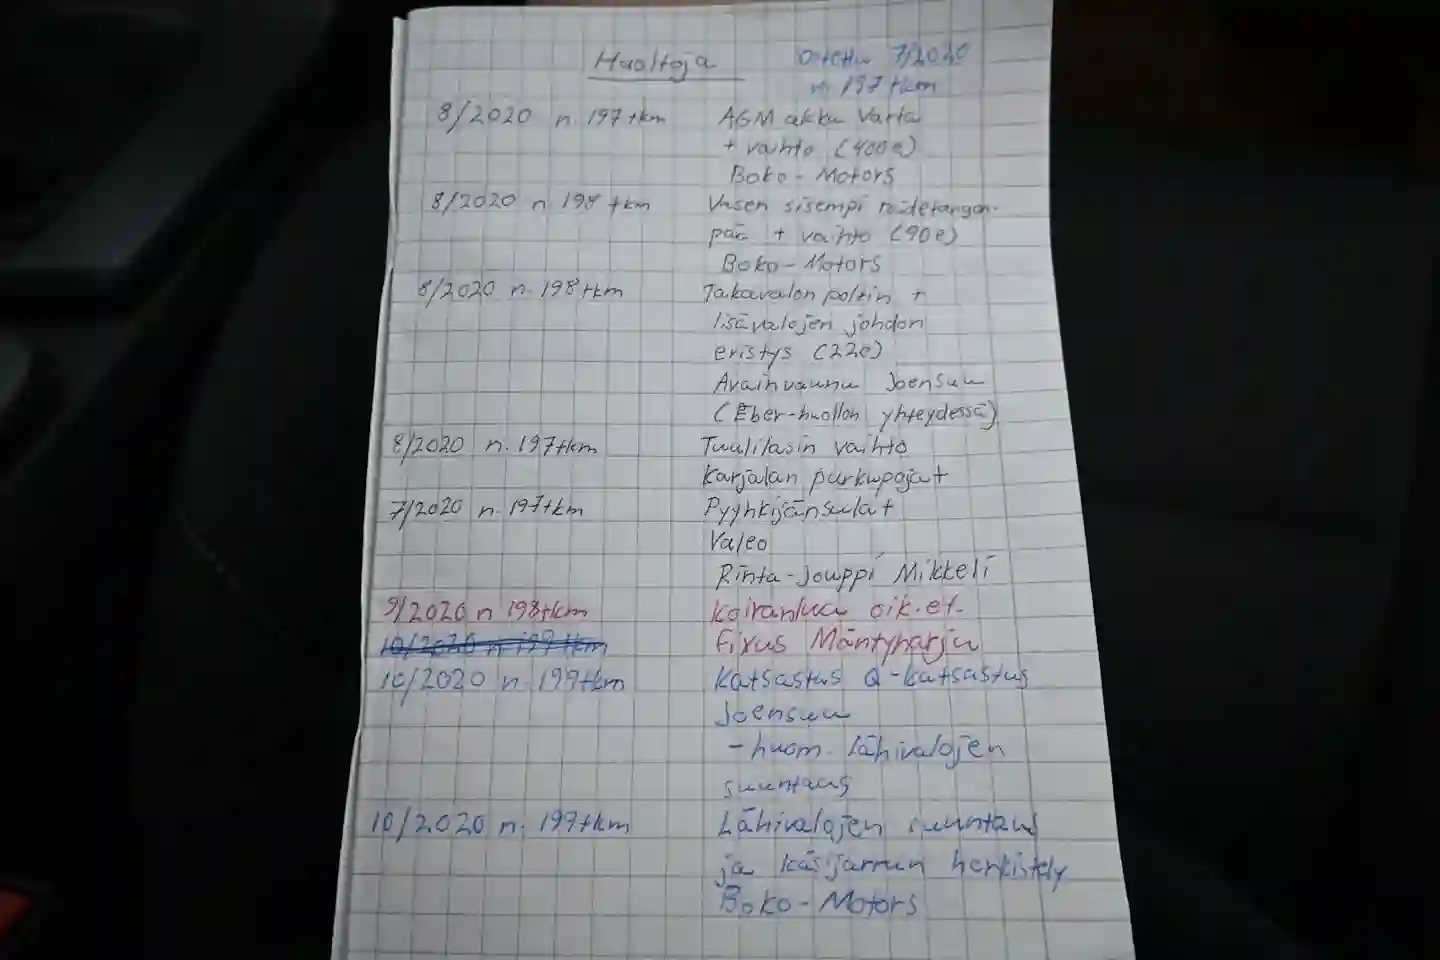 Huoltoja Ostettu 7/2020
n. 197 tkm
8/2020 n. 197 tkm AGM akku Varta
+ vaihto (400e)
Boko-Motors
8/2020 n. 198 tkm Vasen sisempi raidetangon-
pää + vaihto (90e)
Boko-Motors
8/2020 n. 198 tkm Takavalon poltin +
lisävalojen johdon
eristys (22e)
Avainvaunu Joensuu
(Eber-huollon yhteydessä)
8/2020 n. 197 tkm Tuulilasin vaihto
Karjalan purkupojat
7/2020 n. 197 tkm Pyyhkijänsulat
Valeo
Rinta-Jouppi Mikkeli
9/2020 n 198 tkm Koiranluu oik. et.
10/2020 n 199 tkm Fixus Mäntyharju
10/2020 n. 199 tkm Katsastus Q-katsastus
Joensuu
- huom. lähivalojen
suuntaus
10/2020 n. 199 tkm Lähivalojen suuntaus
ja käsijarrun herkistely
Boko-Motors